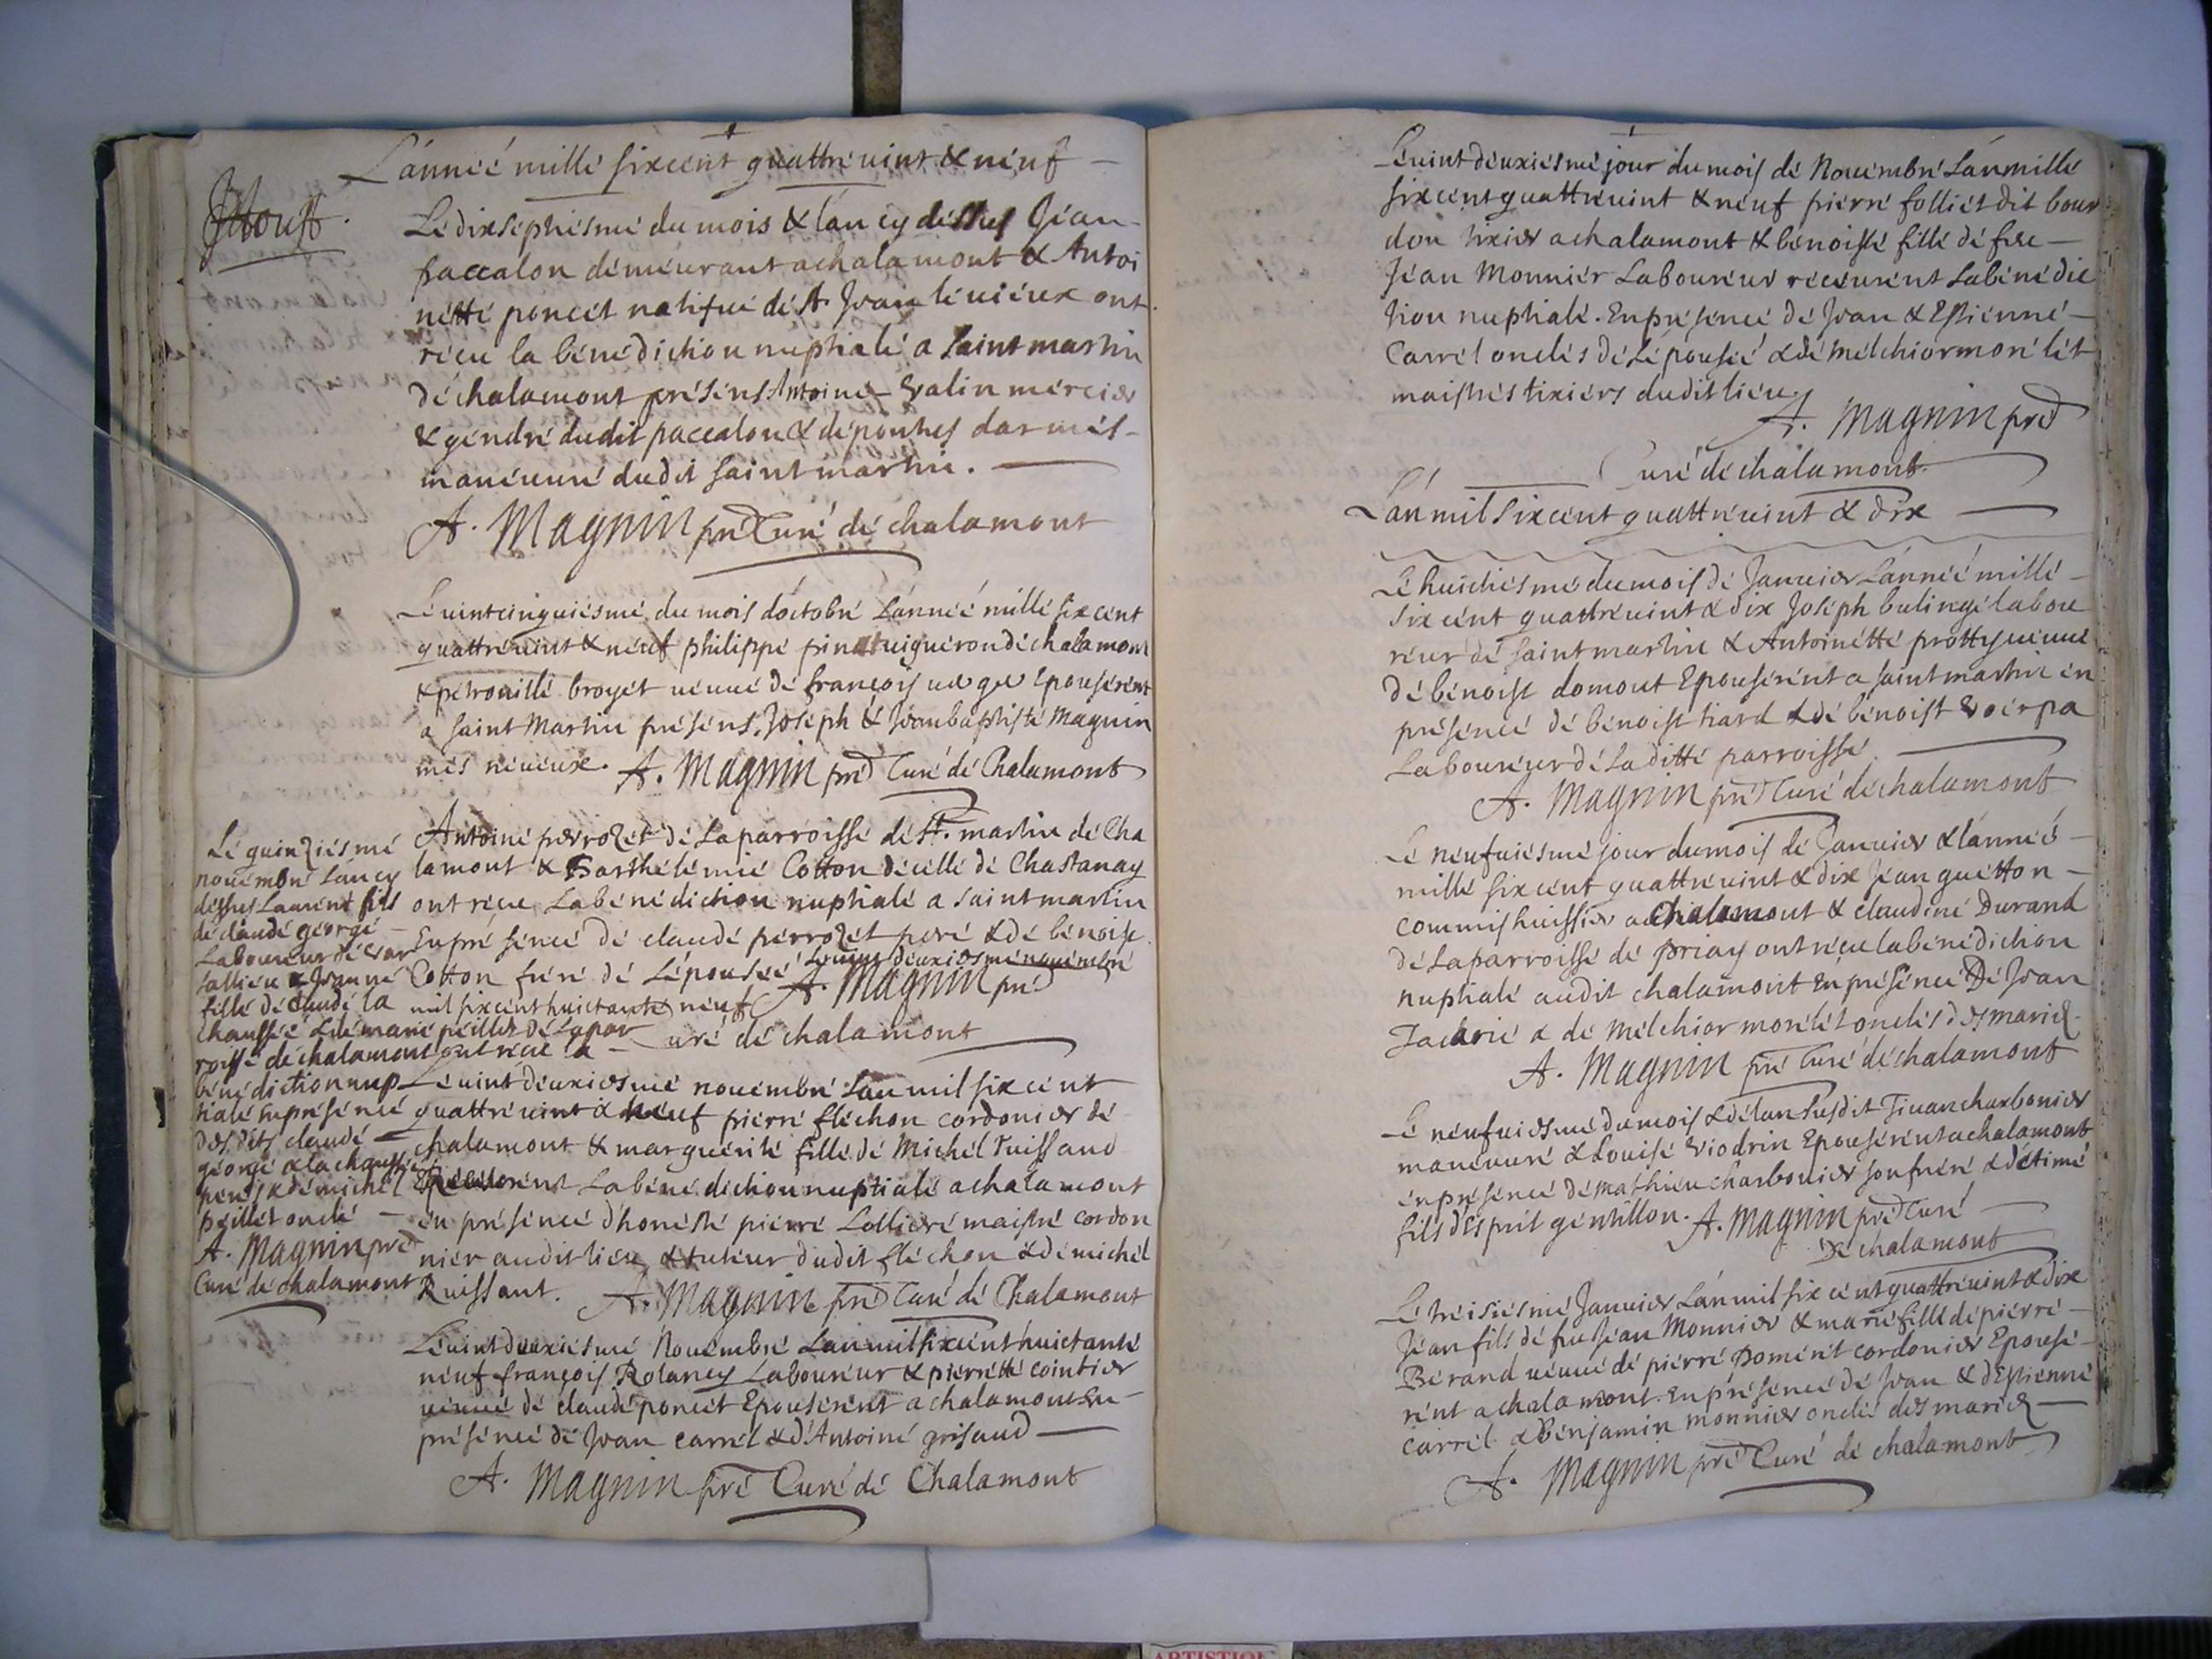 L'année mille six cent quattre uint & neuf
Aoust.
Le dixsephiesme du mois & lan cy dessus Jean
paccalon demeurant a chalamont & Antoi
nette poncet natifue de St Jean le uieux ont
receu la benediction nuptiale a Saint martin
de chalamont présens Antoine Valin mercier
& gendre dudit paccalon & deponthus darmes
maneuure dudit saint martin.
A. Magnin pre Curé de chalamont
Le uintcinquiesme du mois doctobre Lannee mille six cent
quattre uint & neuf philippe pinat uigueron de chalamont
& petronille broyet ueuue de françois uerger Epouserent
a Saint Martin présens, Joseph & Jeanbaptiste Magnin
mes neueux. A. Magnin pre Curé de Chalamont
Antoine perrozet de La parroisse de St. martin de Cha
lamont & Barthelemie Cotton de celle de Chastanay
ont receu La bénédiction nuptiale a Saint martin
En présence de claude perrozet pere & de benoist
Cotton frere de Lépousée Leuint deuxiesme nouembre
mil six cent huictante neuf A. Magnin pre
Curé de chalamont
Le quinziesme
nouembre Lancy
dessus Laurent fils
de claude george
Laboureur de
& Jeanne
fille de claude la
chaussée & de marie peillet de La par
roisse de chalamont ont receu la
bénédiction nup
tiale en présence
desdits claude
george & la chaussée
peres & de michel
peillet oncle
A. Magnin pre
Curé de chalamont
Le uint deuxiesme nouembre Lan mil six cent
quattre uint & neuf pierre flechon cordonier de
chalamont & marguerite fille de Michel Ruissand
receurent La bénédiction nuptiale a chalamont
en présence d'honeste pierre Lolliere maistre cordon
nier audit lieu & tuteur dudit flechon & de michel
Ruissant. A. Magnin pre Curé de Chalamont
Le uint deuxiesme Nouembre Lan mil six cent huictante
neuf françois Rolancy Laboureur & pierrette cointier
ueuue de claude poncet Epouserent a chalamont En
présence de Jean carrel & d'Antoine grisaud
A. Magnin pre Curé de Chalamont
Le uint deuxiesme jour du mois de Nouembre Lan mille
six cent quattre uint & neuf pierre folliet dit bour
don tixier a chalamont & benoiste fille de feu
Jean Monnier Laboureur receurent La bénédic
tion nuptiale. En présence de Jean & Estienne
Carrel oncles de Lépousée & de melchior morelet
maistres tixiers dudit lieu
A. Magnin pre
Curé de chalamont.
L'an mil six cent quattre uint & dix
Le huictiesme du mois de Januier Lannée mille
six cent quattre uint & dix Joseph bulinge labou
reur de saint martin & Antoinette protty ueuue
de benoist domont Epouserent a saint martin en
présence de benoist tiard & de benoist Voerpa
Laboureur de La ditte parroisse
A. Magnin pre Curé de chalamont
Le neufuiesme jour du mois de Januier & lannee
mille six cent quattre uint & dix Jean guetton
commis huissier a Chalamont & claudine Durand
de La parroisse de priay ont receu la bénédiction
nuptiale audit chalamont En présence De Jean
Jacarie & de Melchior morelet oncles des mariez
A. Magnin pre Curé de chalamont
Le neufuiesme du mois & de lan susdit Jiuan charbonier
maneuure & Louise Viodrin Epouserent a chalamont
en présence de mathieu charbonier son frere & detime
fils desprit gentillon. A. Magnin pre Curé
De chalamont
Le treisiesme Januier Lan mil six cent quattre uint & dix
Jean fils de feu Jean Monnier & marie fille de pierre
Berand ueuue de pierre poment cordonier Epouse
rent a chalamont. En présence de Jean & d'Estienne
carrel & Benjamin monnier oncle des mariez
A. Magnin pre Curé de chalamont